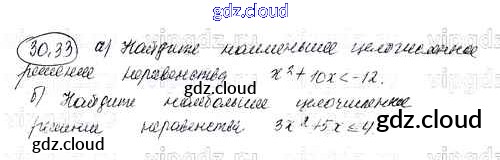 gdz.cloud
30.33 а) Найдите наименьшее целочисленное
решение неравенства x² + 10x < -12.
б) Найдите наибольшее целочисленное
решение неравенства 3x² + 5x ≤ 4
gdz.cloud
gdz.cloud
gdz.cloud
gdz.cloud